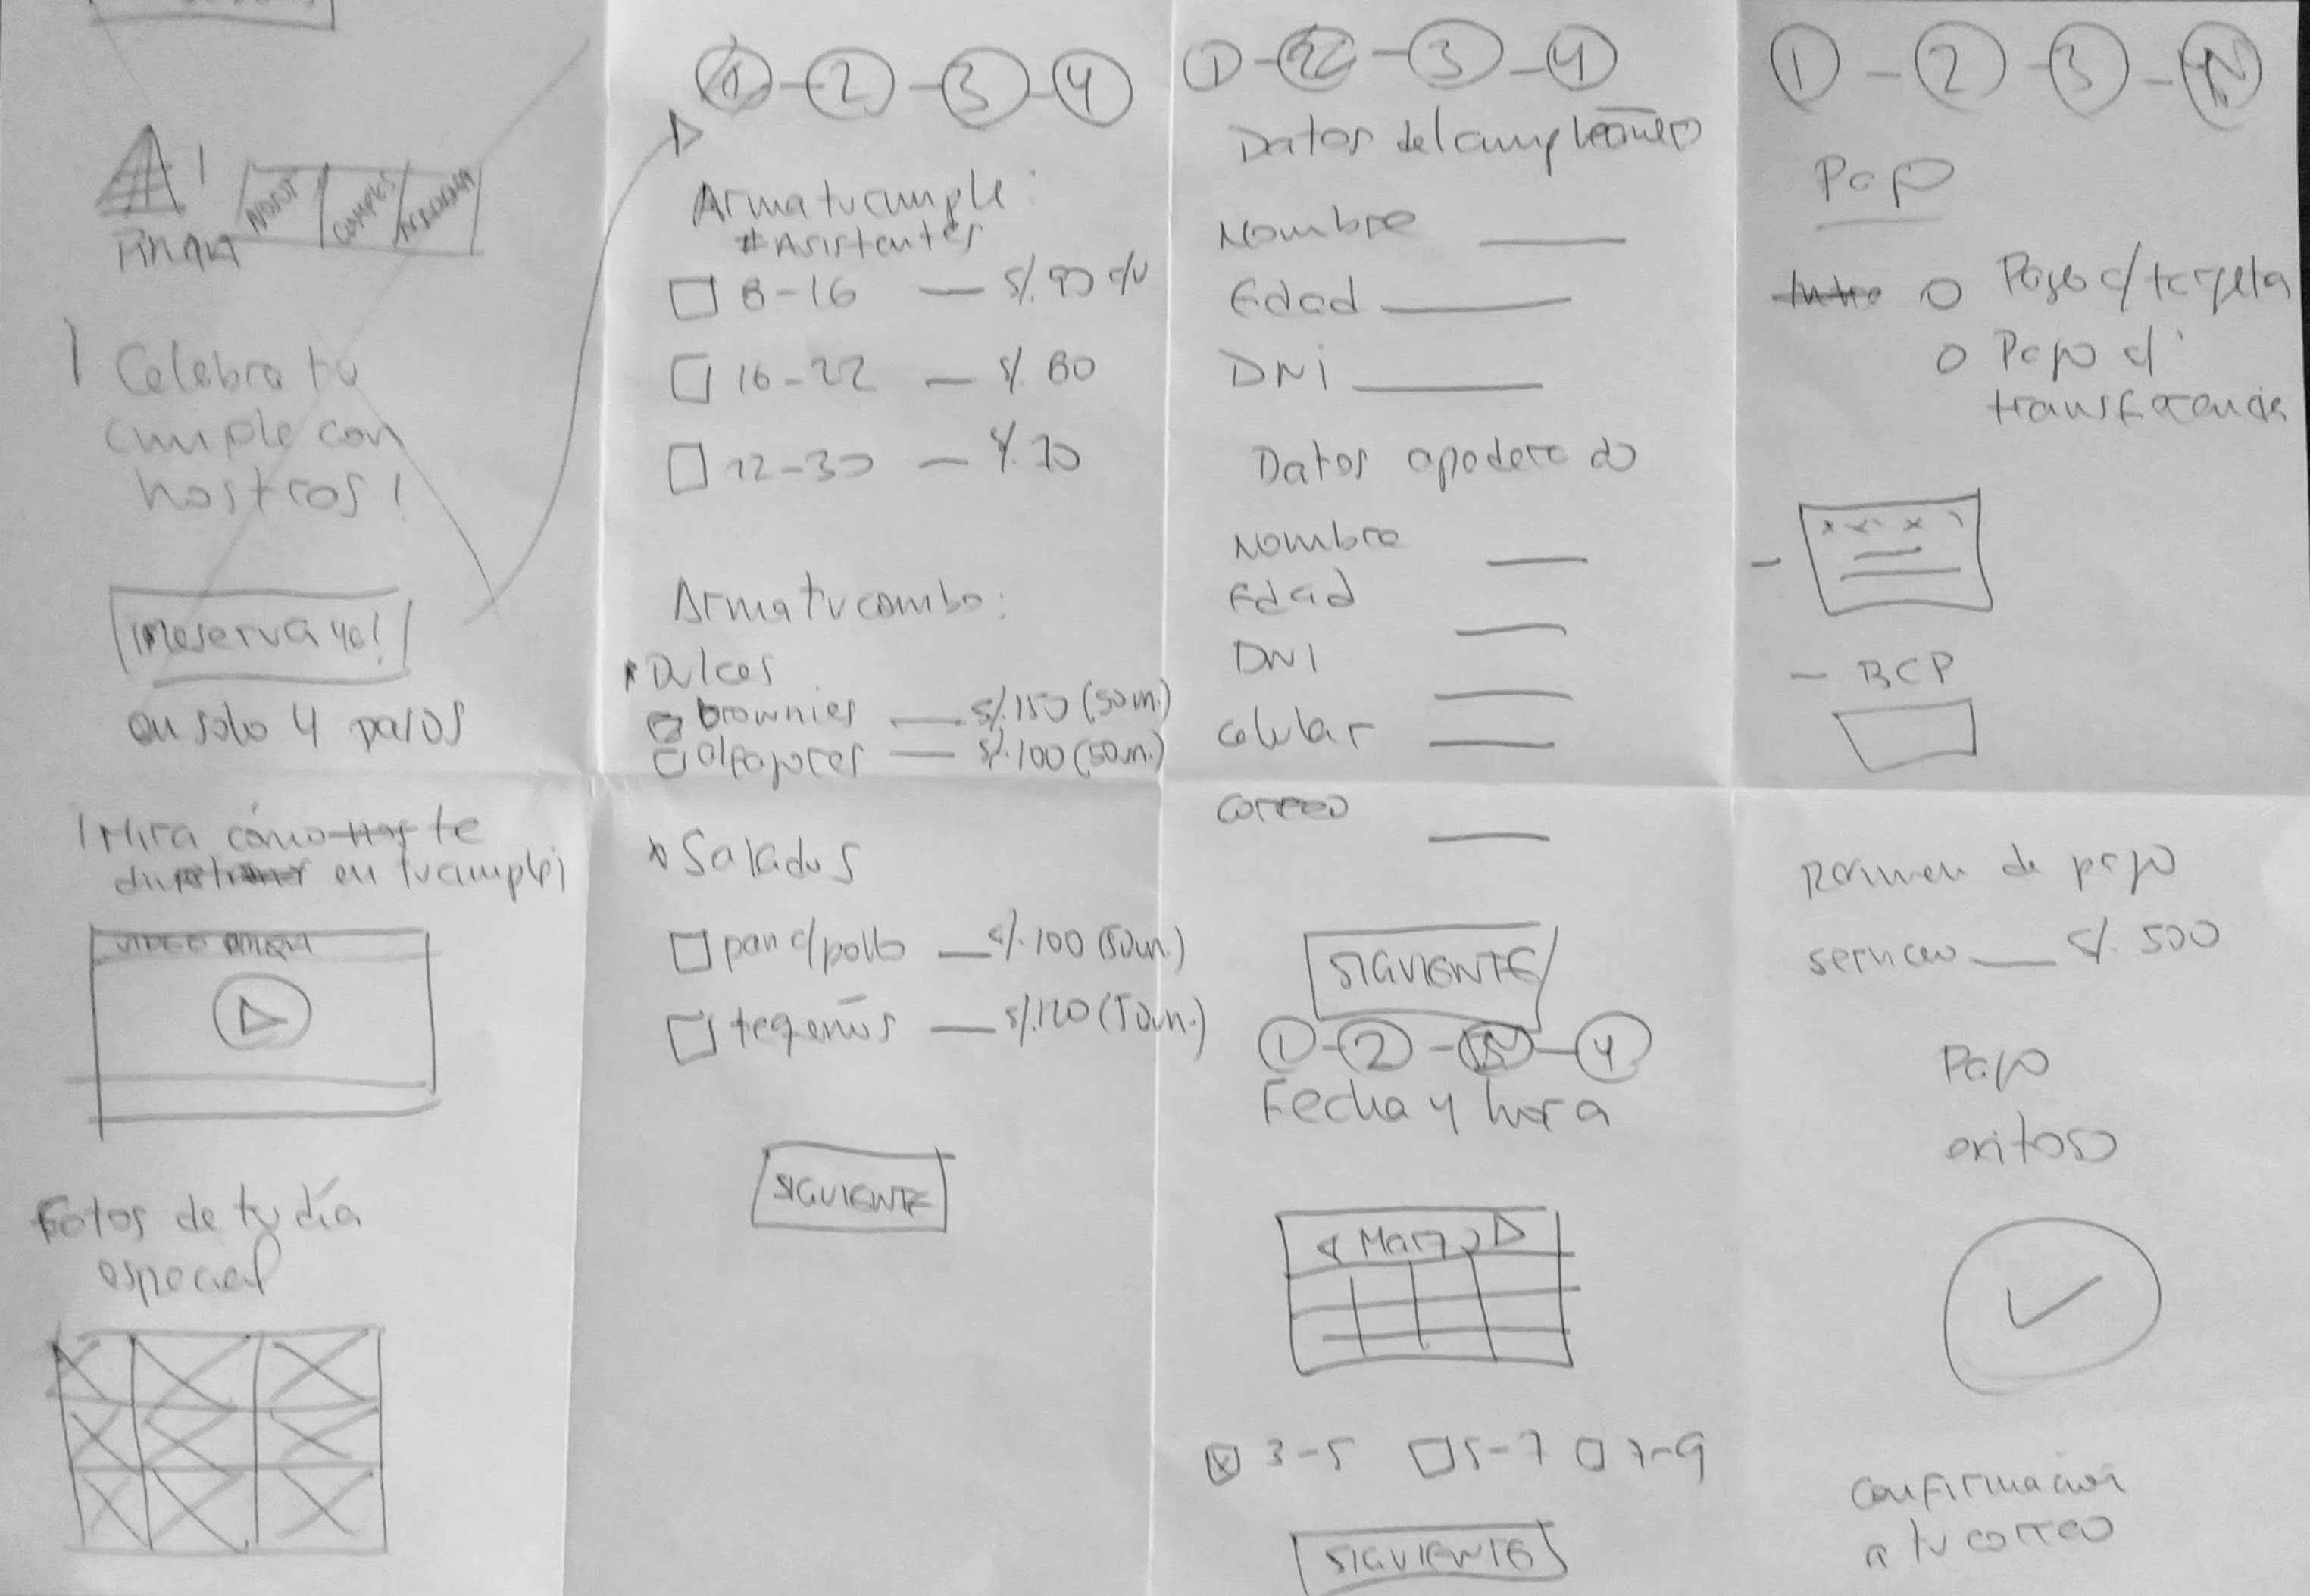 CUMPLES
Celebra tu
cumple con
nostros!
¡Reserva ya!
en solo 4 pasos
¡Mira cómo te
en tu cumple!
VIDEO
Fotos de tu día
especial
1 - 2 - 3 - 4
Arma tu cumple:
# Asistentes
8-16 — S/. 90 c/u
16-22 — S/. 80
22-30 — S/. 70
Arma tu combo:
* Dulces
brownies — S/. 150 (50un.)
alfajores — S/. 100 (50un.)
* Salados
pan c/pollo — S/. 100 (50un.)
tequeños — S/. 120 (50un.)
SIGUIENTE
1 - 2 - 3 - 4
Datos del cumpleañero
Nombre
Edad
DNI
Datos apoderado
Nombre
Edad
DNI
Celular
Correo
SIGUIENTE
1 - 2 - 3 - 4
Fecha y hora
Marzo
3-5 5-7 7-9
SIGUIENTE
1 - 2 - 3 - 4
Pago
Pago c/tarjeta
Pago c/
transferencia
- BCP
Resumen de pago
servicio — S/. 500
Pago
exitoso
confirmación
a tu correo